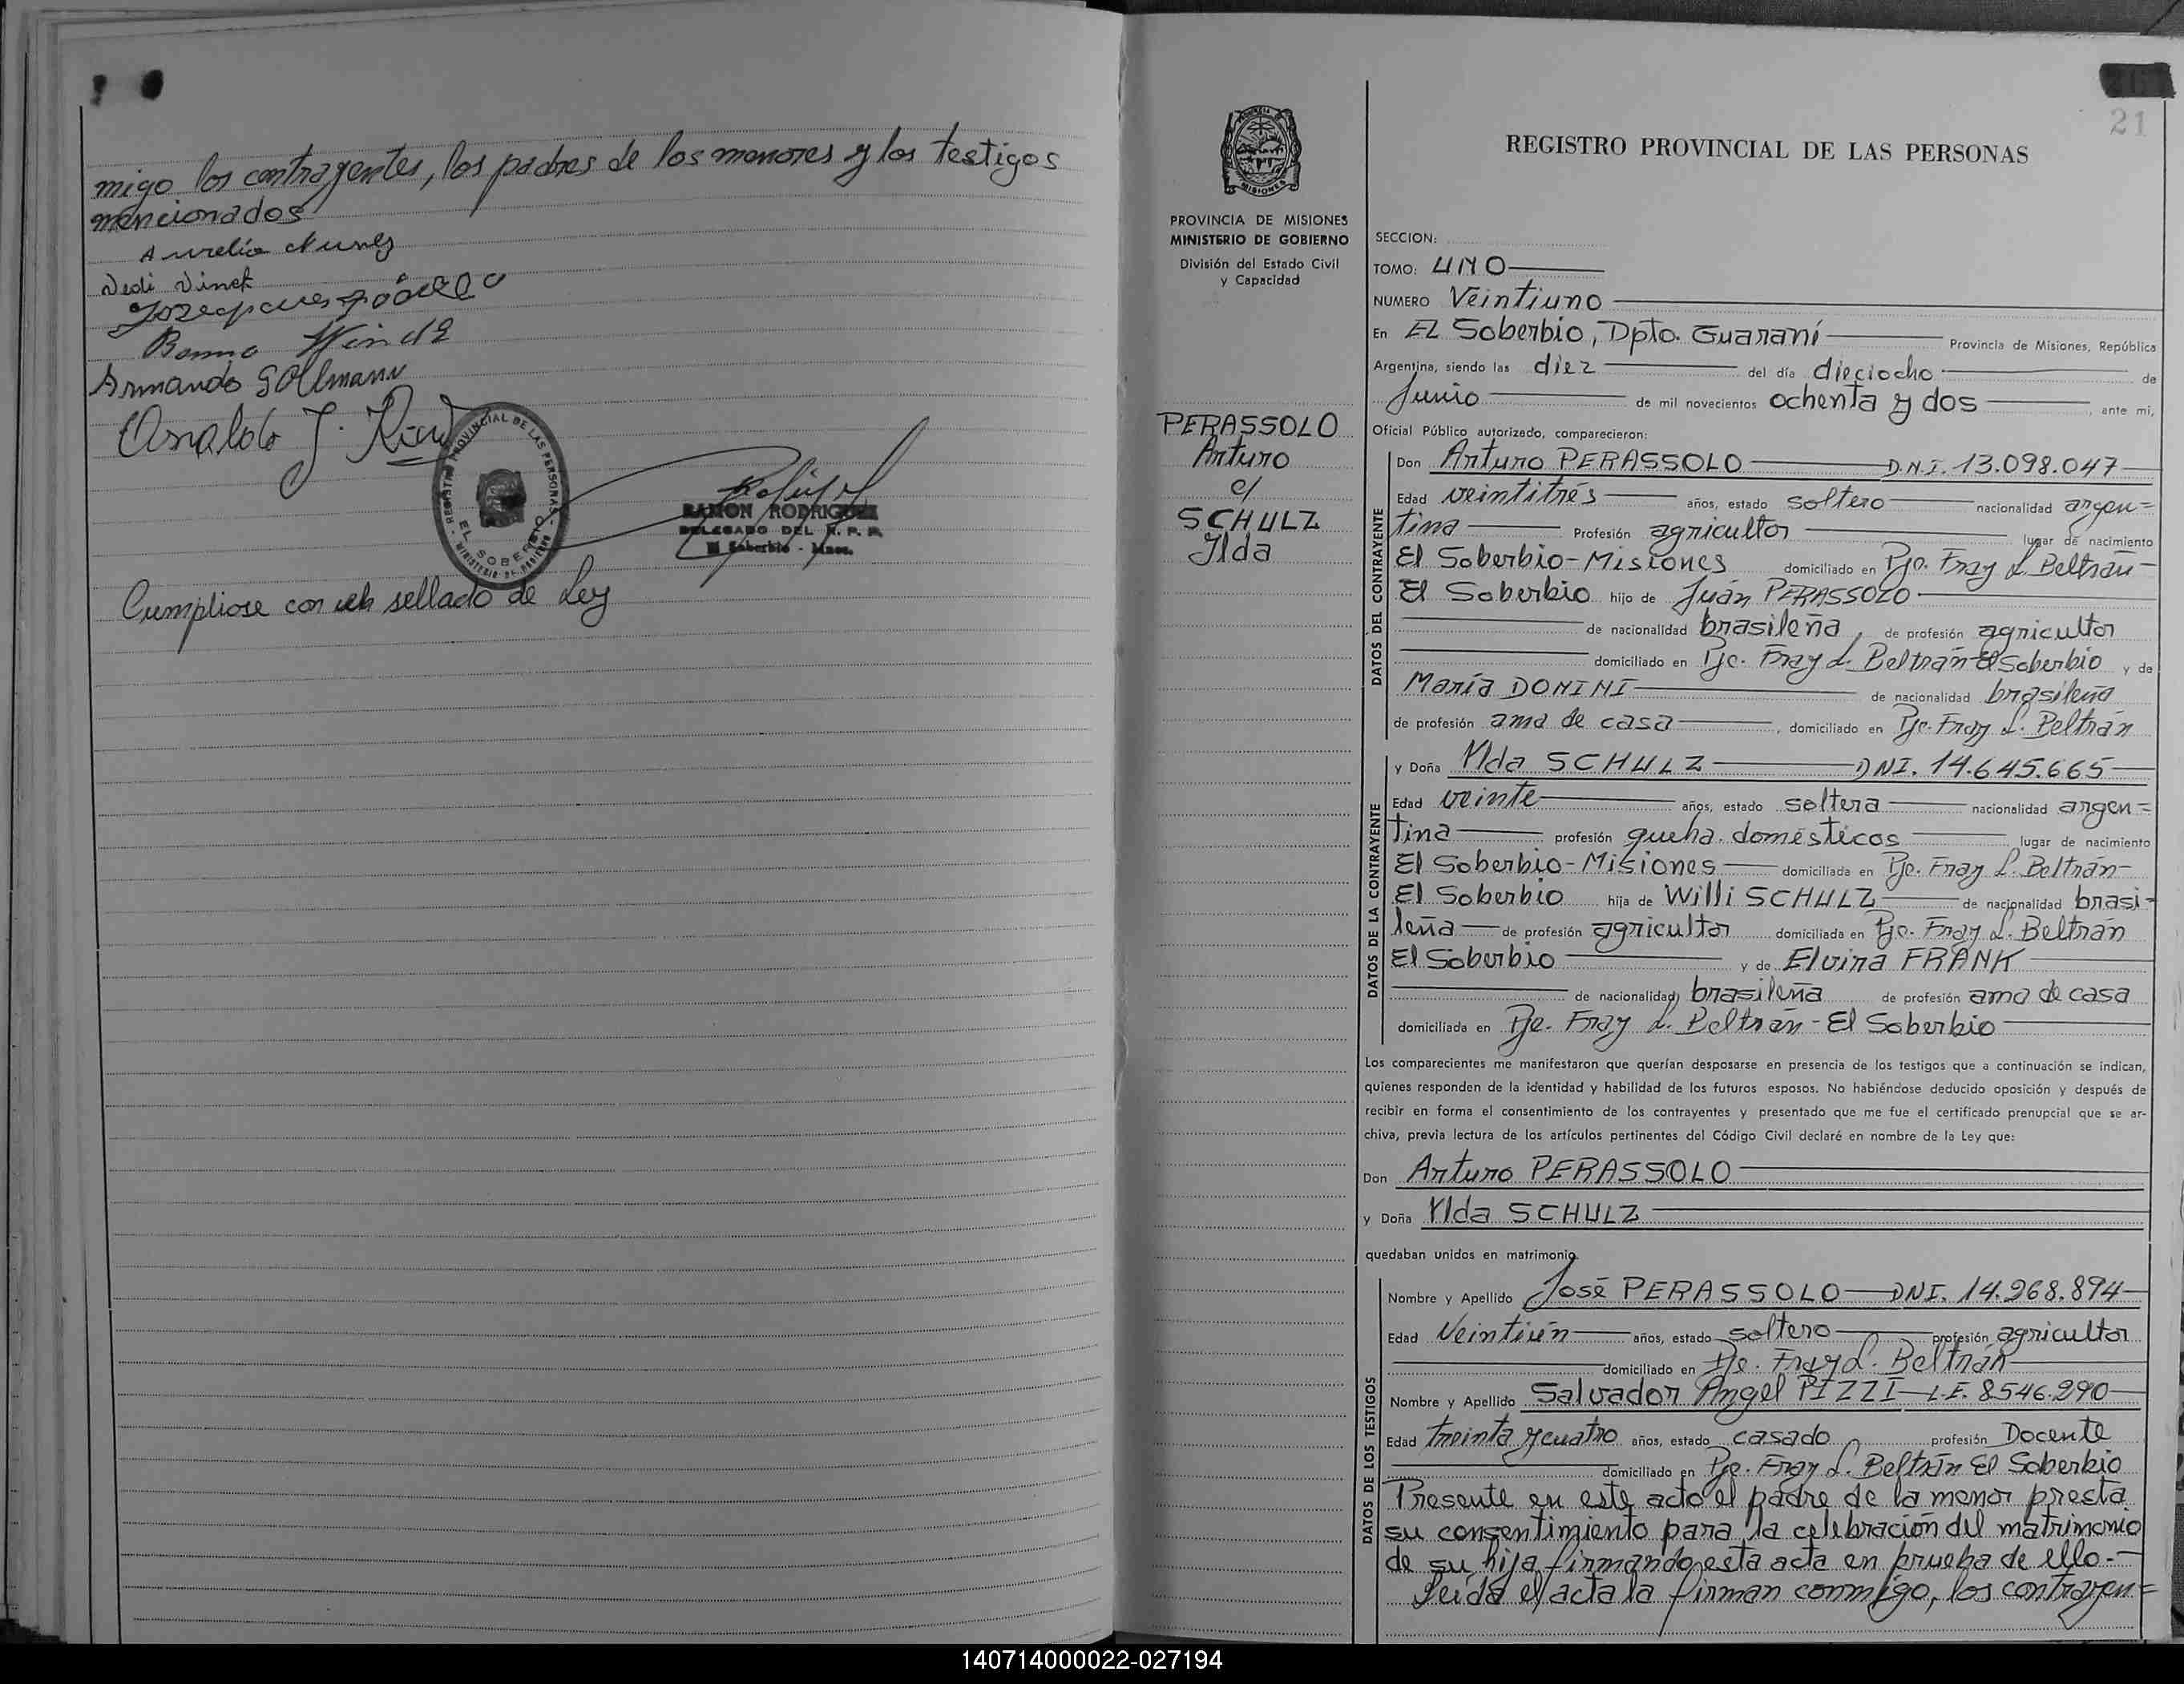 migo los contrayentes, los padres de los menores y los testigos
mencionados
Aurelio Nunes
Armando Gollmann
Osvaldo J.
REGISTRO PROVINCIAL DE LAS PERSONAS
EL SOBERBIO
MINISTERIO DE GOBIERNO
RAMON RODRIGUEZ
DELEGADO DEL R. P. P.
El Soberbio - Mnes.
Cumpliose con el sellado de Ley
21
REGISTRO PROVINCIAL DE LAS PERSONAS
PROVINCIA DE MISIONES
MINISTERIO DE GOBIERNO
División del Estado Civil
y Capacidad
PERASSOLO
Arturo
c/
SCHULZ
Ilda
SECCION:
TOMO: UNO
NUMERO Veintiuno
En El Soberbio, Dpto. Guaraní Provincia de Misiones, República
Argentina, siendo las diez del día dieciocho de
Junio de mil novecientos ochenta y dos, ante mi,
Oficial Público autorizado, comparecieron:
DATOS DEL CONTRAYENTE
Don Arturo PERASSOLO D.N.I. 13.098.047
Edad veintitrés años, estado soltero nacionalidad argen=
tina Profesión agricultor lugar de nacimiento
El Soberbio-Misiones domiciliado en Pje. Fray L. Beltrán-
El Soberbio hijo de Juán PERASSOLO
de nacionalidad brasileña, de profesión agricultor
domiciliado en Pje. Fray L. Beltrán-El Soberbio y de
María DONINI de nacionalidad brasileña
de profesión ama de casa, domiciliado en Pje. Fray L. Beltrán
DATOS DE LA CONTRAYENTE
y Doña Ylda SCHULZ DNI. 14.645.665
Edad veinte años, estado soltera nacionalidad argen=
tina profesión queha. domésticos lugar de nacimiento
El Soberbio-Misiones domiciliada en Pje. Fray L. Beltrán-
El Soberbio hija de Willi SCHULZ de nacionalidad brasi-
leña de profesión agricultor domiciliada en Pje. Fray L. Beltrán
El Soberbio y de Elvira FRANK
de nacionalidad brasileña de profesión ama de casa
domiciliada en Pje. Fray L. Beltrán-El Soberbio
Los comparecientes me manifestaron que querían desposarse en presencia de los testigos que a continuación se indican,
quienes responden de la identidad y habilidad de los futuros esposos. No habiéndose deducido oposición y después de
recibir en forma el consentimiento de los contrayentes y presentado que me fue el certificado prenupcial que se ar-
chiva, previa lectura de los artículos pertinentes del Código Civil declaré en nombre de la Ley que:
Don Arturo PERASSOLO
y Doña Ylda SCHULZ
quedaban unidos en matrimonio
DATOS DE LOS TESTIGOS
Nombre y Apellido José PERASSOLO DNI. 14.268.894
Edad Veintiún años, estado soltero profesión agricultor
domiciliado en Pje. Fray L. Beltrán
Nombre y Apellido Salvador Angel PIZZI L.E. 8546.290
Edad treinta y cuatro años, estado casado profesión Docente
domiciliado en Pje. Fray L. Beltrán El Soberbio
Presente en este acto el padre de la menor presta
su consentimiento para la celebración del matrimonio
de su hija firmando esta acta en prueba de ello.-
Leída el acta la firman conmigo, los contrayen=
140714000022-027194